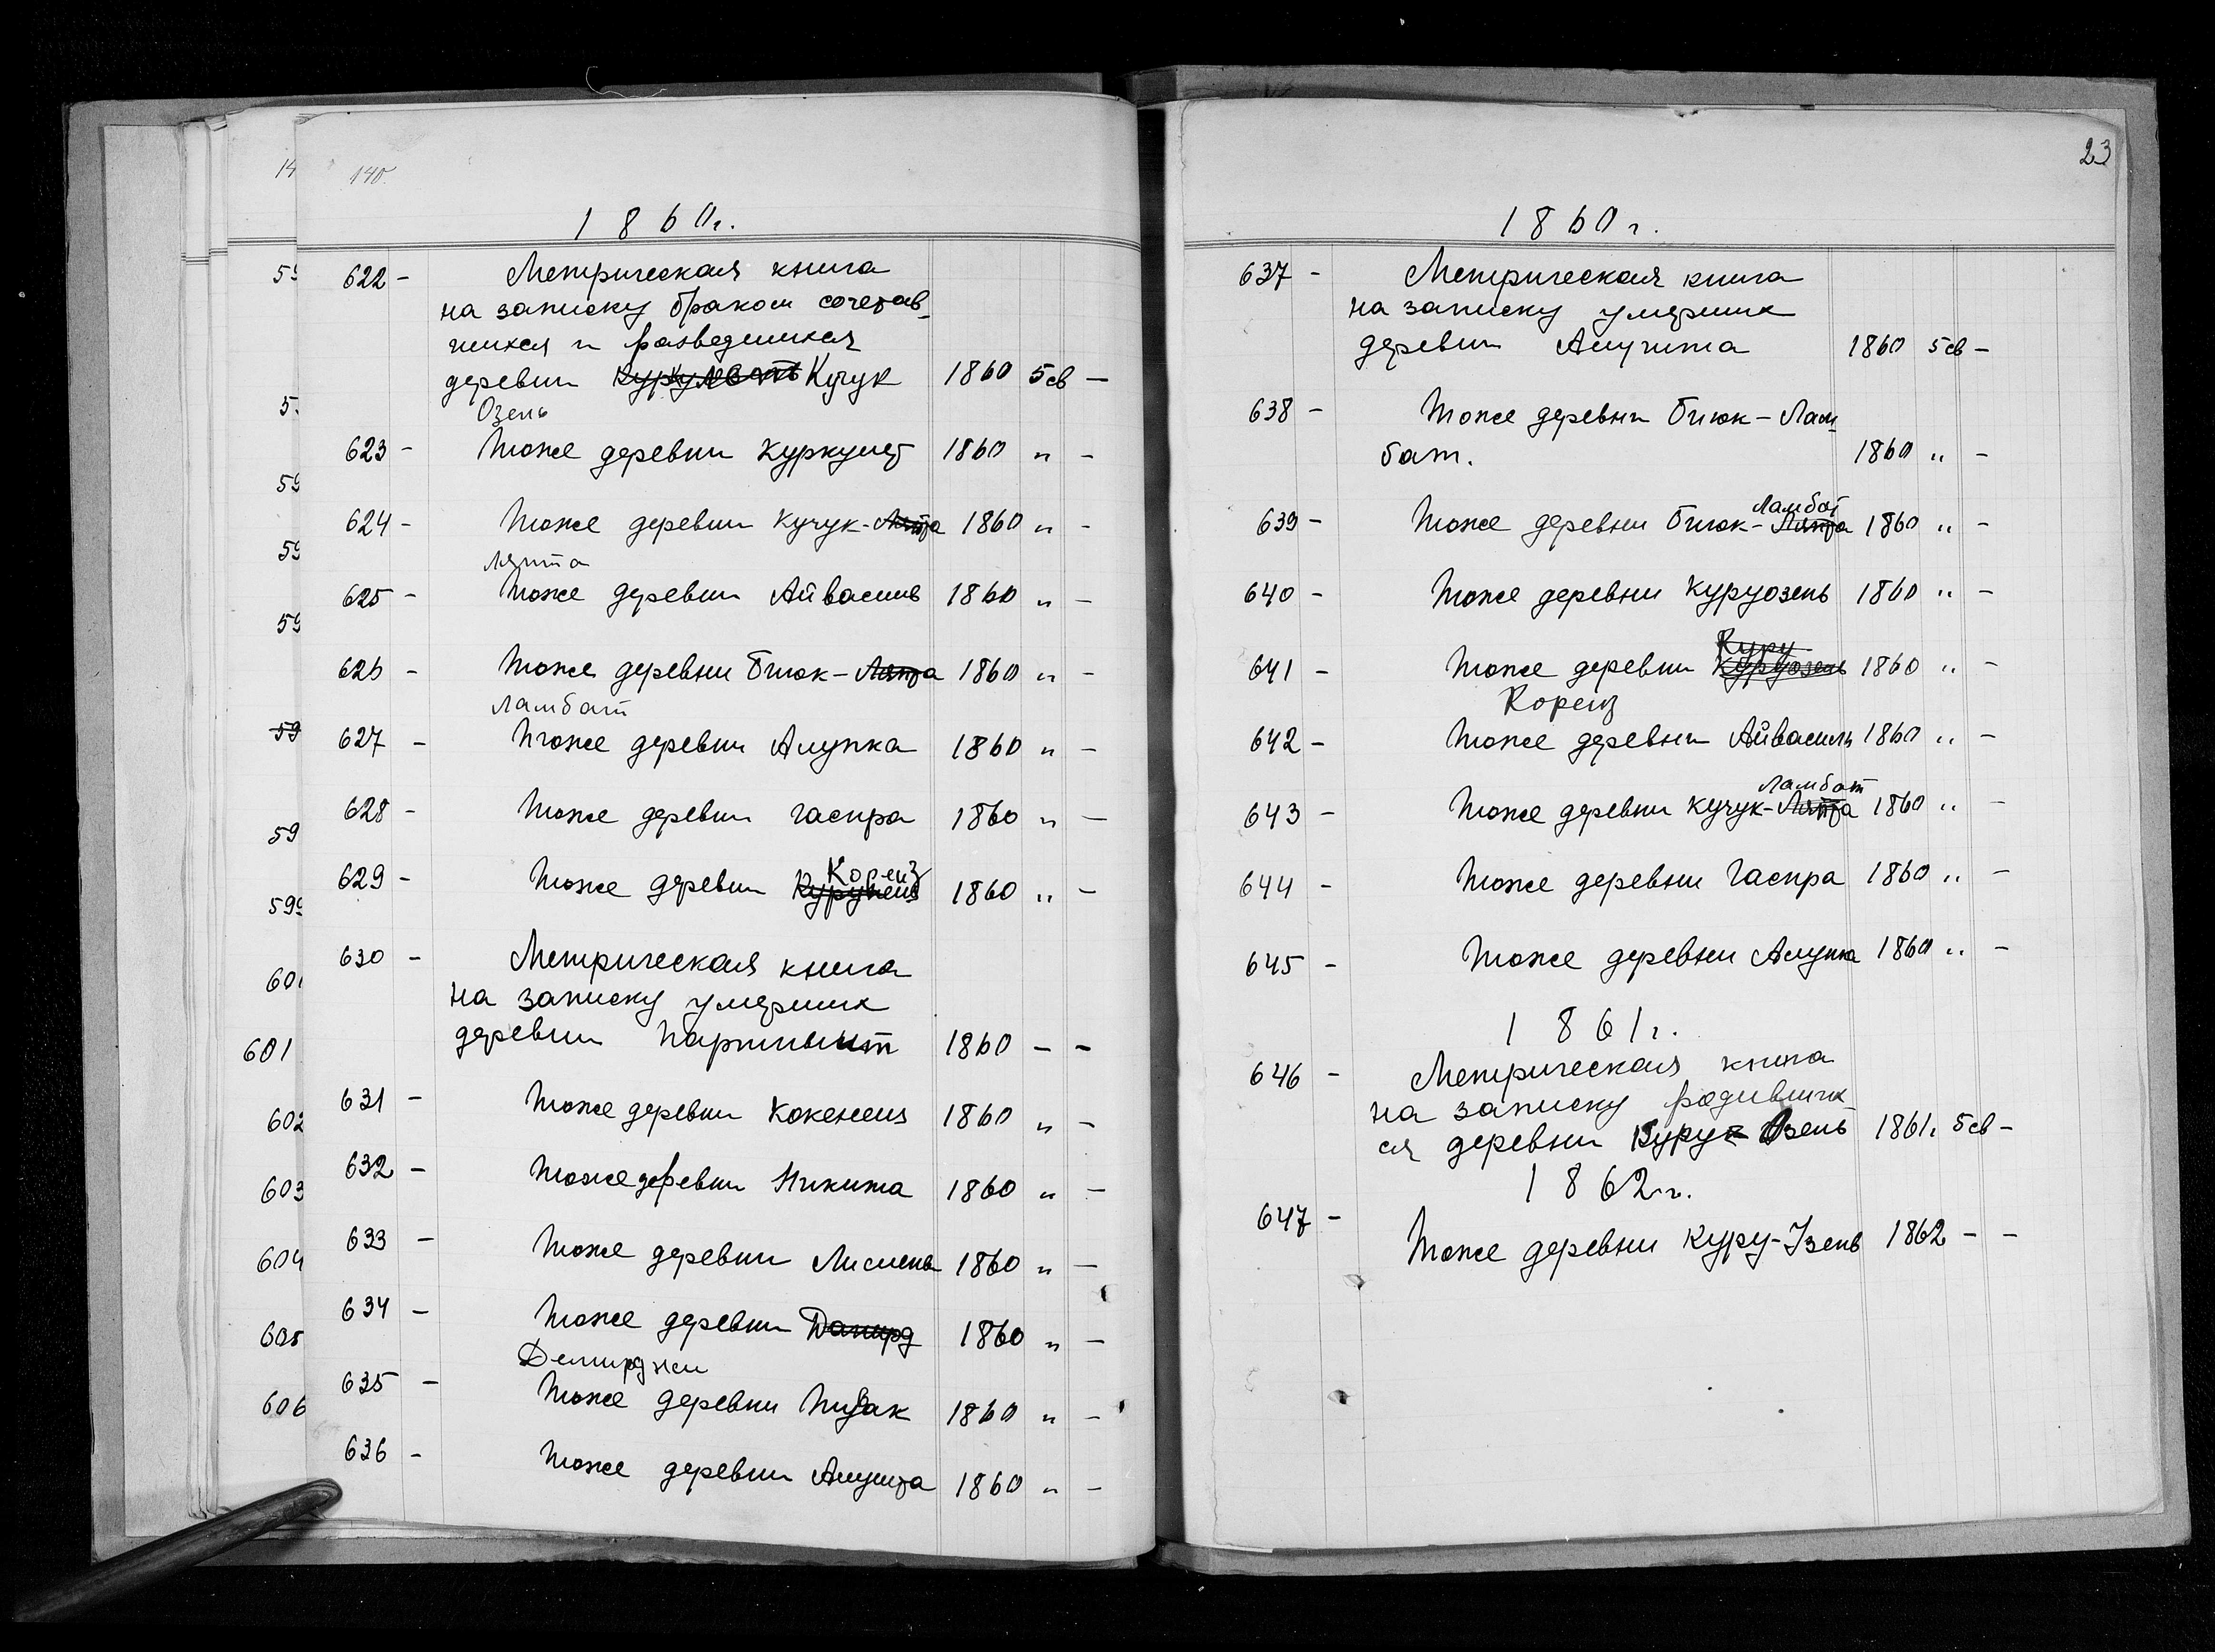 140.
1860г.
622 - Метрическая книга
на записку браком сочетав-
шихся и разведшихся
деревни Куркулеть Кучук 1860 5 св -
Озень
623 - Тоже деревни Куркулет 1860 " -
624 - Тоже деревни Кучук-Ляпта 1860 " -
Ляпта
625 - Тоже деревни Айвасиль 1860 " -
626 - Тоже деревни Биюк-Ляпта 1860 " -
Ламбат
627 - Тоже деревни Алупка 1860 " -
628 - Тоже деревни Гаспра 1860 " -
Кореиз
629 - Тоже деревни 1860 " -
630 - Метрическая книга
на записку умерших
деревни Партинит 1860 - -
631 - Тоже деревни Кокенеиз 1860 " -
632 - Тоже деревни Никита 1860 " -
633 - Тоже деревни Лимена 1860 " -
634 - Тоже деревни 1860 " -
Демирджи
635 - Тоже деревни 1860 " -
636 - Тоже деревни Алушта 1860 " -
14
59
5
59
59
59
59
59
599
60
601
602
603
604
605
606
23
1860г.
637 - Метрическая книга
на записку умерших
деревни Алушта 1860 5 св -
638 - Тоже деревни Биюк-Лам-
бат. 1860 " -
Ламбат
639 - Тоже деревни Биюк-Ляпта 1860 " -
640 - Тоже деревни Куруозень 1860 " -
Куру
641 - Тоже деревни Куруозень 1860 " -
Кореиз
642 - Тоже деревни Айвасиль 1860 " -
Ламбат
643 - Тоже деревни Кучук-Ляпта 1860 " -
644 - Тоже деревни Гаспра 1860 " -
645 - Тоже деревни Алупка 1860 " -
1861г.
646 - Метрическая книга
на записку родивших
ся деревни Куру- Озень 1861г 5 св -
1862г.
647 - Тоже деревни Куру-Узень 1862 - -